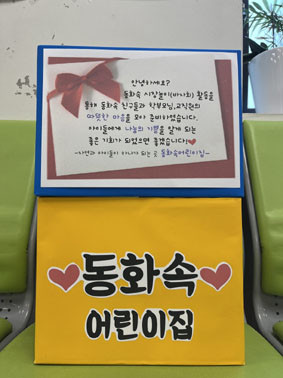 안녕하세요?
동화속 시장놀이(바나회) 활동을
통해 동화속 친구들과 학부모님,교직원의
따뜻한 마음을 모아 준비하였습니다.
아이들에게 나눔의 기쁨을 알게 되는
좋은 기회가 되었으면 좋겠습니다!
-자연과 아이들이 하나가 되는 곳 동화속어린이집-
동화속
어린이집